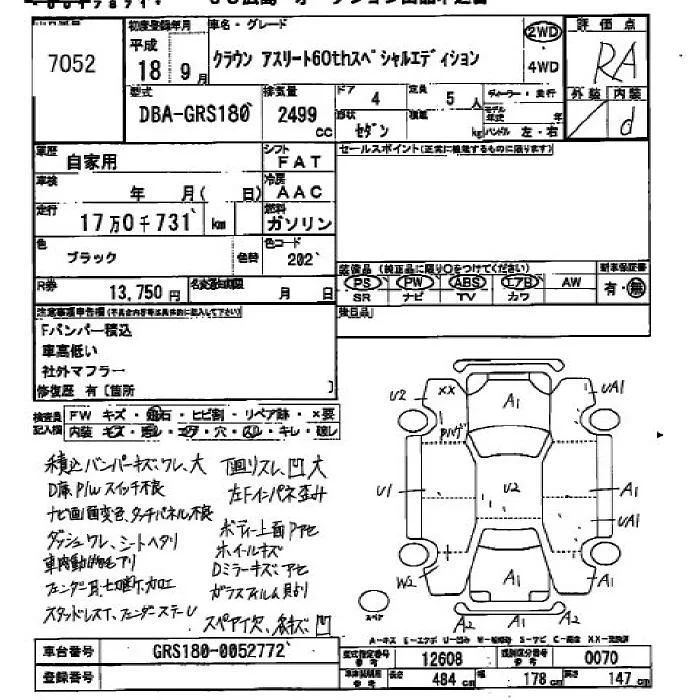 7052
初度登録年月
平成
18 9月
車名・グレード
クラウン アスリート60thスペシャルエディション
2WD
・
4WD
評価点
RA
外装 内装
d
型式
DBA-GRS180
排気量
2499
cc
ドア
4
形状
セダン
定員
5人
積載
kg
ディーラー・並行
モデル年式 年
ハンドル 左・右
車歴
自家用
シフト
FAT
車検
年 月( 日)
冷房
AAC
走行
17万0千731 km
燃料
ガソリン
色
ブラック
色替
色コード
202
R券
13,750円
名変期限
月 日
セールスポイント(正常に機能するものに限ります)
装備品(純正品に限り〇をつけてください)
PS PW ABS エアB AW
SR ナビ TV カワ
新車保証書
有・無
注意事項申告欄(不具合内容等は具体的に記入して下さい)
Fバンパー積込
車高低い
社外マフラー
修復歴 有〔箇所 〕
検査員記入欄
FW キズ・飛石・ヒビ割・リペア跡・×要
内装 キズ・汚レ・コゲ・穴・スレ・キレ・破レ
積込バンパーキズ、ワレ、大
D席P/Wスイッチ不良
ナビ画面変色、タッチパネル不良
ダッシュワレ、シートヘタリ
下回りスレ、凹大
左Fインパネ歪み
ボディー上面Pアセ
ホイールキズ
Dミラーキズ、アセ
ガラスフィルム貼り
U2
××
A1
UA1
U1
U2
A1
UA1
W2
A1
A1
A2
A2
スペア
A-キズ E-エクボ U-凹み W-補修跡 S-サビ C-腐食 XX-交換済
車台番号
GRS180-0052772
登録番号
型式指定番号
参考
12608
類別区分番号
参考
0070
長さ
484 cm
幅
178 cm
高さ
147 cm